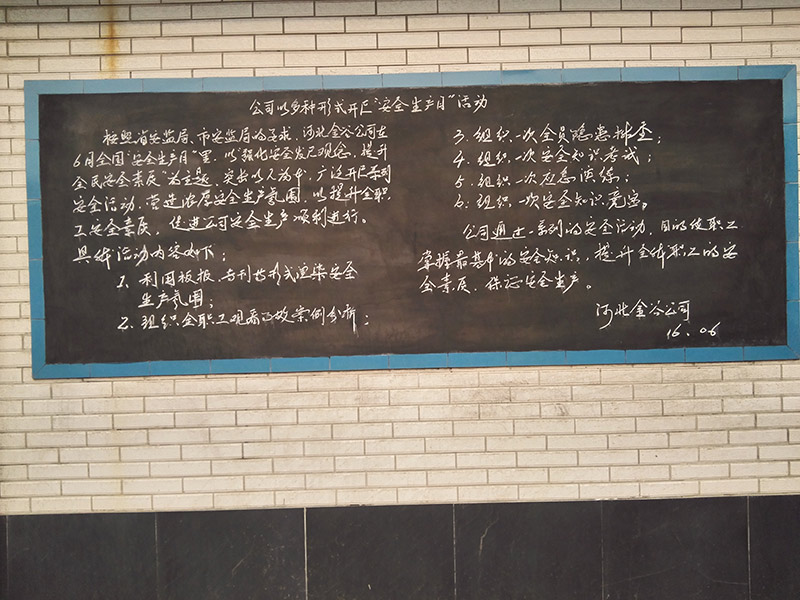 公司以多种形式开展“安全生产月”活动
按照省安监局、市安监局的要求，河北金谷公司在
6月全国“安全生产月”里，以“强化安全发展观念，提升
全民安全素质”为主题，突出以人为本，广泛开展系列
安全活动，营造浓厚安全生产氛围，以提升全职
工安全素质，促进公司安全生产顺利进行。
具体活动内容如下：
1、利用板报、专刊等形式渲染安全
生产氛围；
2、组织全职工观看事故案例分析；
3、组织一次全员隐患排查；
4、组织一次安全知识考试；
5、组织一次应急演练；
6、组织一次安全知识竞赛。
公司通过一系列的安全活动，目的使职工
掌握最基本的安全知识，提升全体职工的安
全素质，保证安全生产。
河北金谷公司
16.06